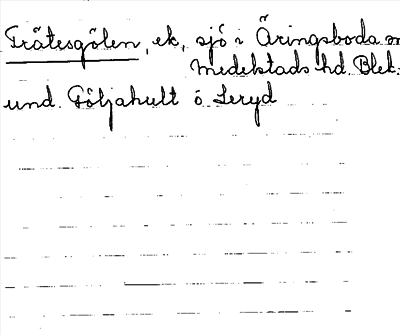 Trätesgölen, ek, sjö i Äringsboda
Medelstads hd. Blek.
und. Göljahult ö Leryd